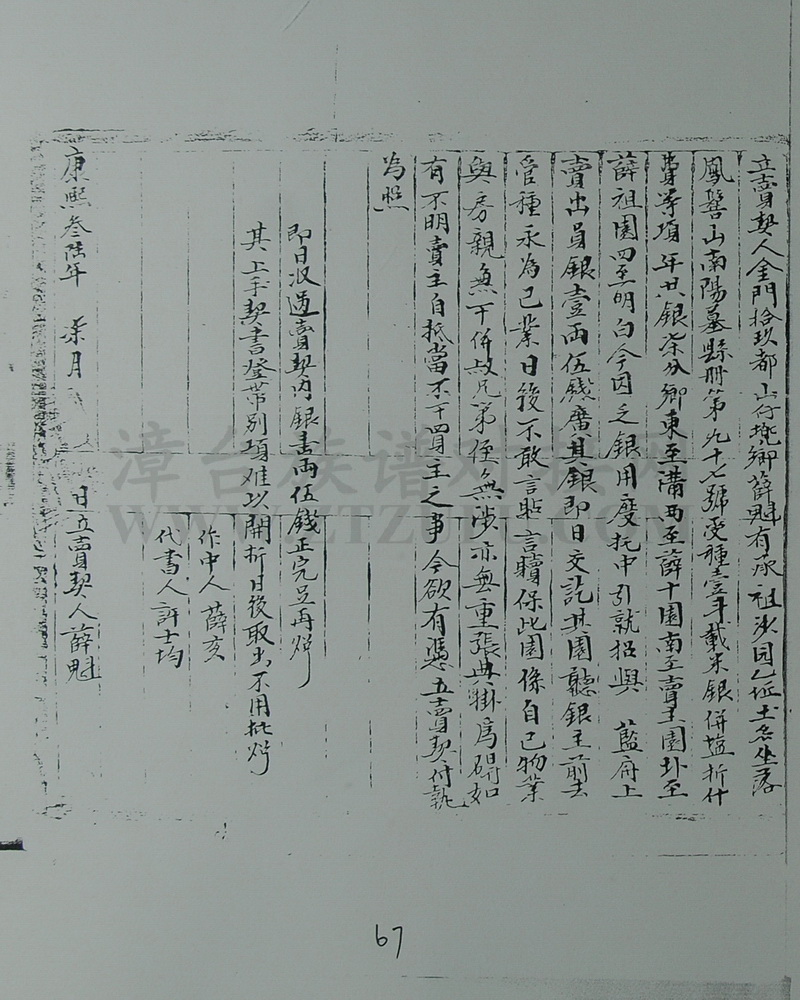 立賣契人金門拾玖都山仔兠鄉薛魁有承祖沙园乙坵土名坐落
鳳髻山南陽墓縣冊第九十七號受種壹斗載米銀併塩折什
費等項年共銀柒分鄉東至溝西至薛十園南至賣主園北至
薛祖園四至明白今因乏銀用度托中引就招與藍府上
賣出員銀壹両伍錢廣其銀即日交訖其園聽銀主前去
管種永為己業日後不敢言貼言贖保此園係自己物業
與房親無干併叔兄弟侄無涉亦無重張典掛為碍如
有不明賣主自抵當不干買主之事今欲有憑立賣契付執
為照
即日收過賣契內銀壹両伍錢正完足再炤
其上手契書登帶別項难以開折日後取出不用批炤
作中人薛亥
代書人許士均
康熙叁陸年柒月日立賣契人薛魁
漳台族谱
67